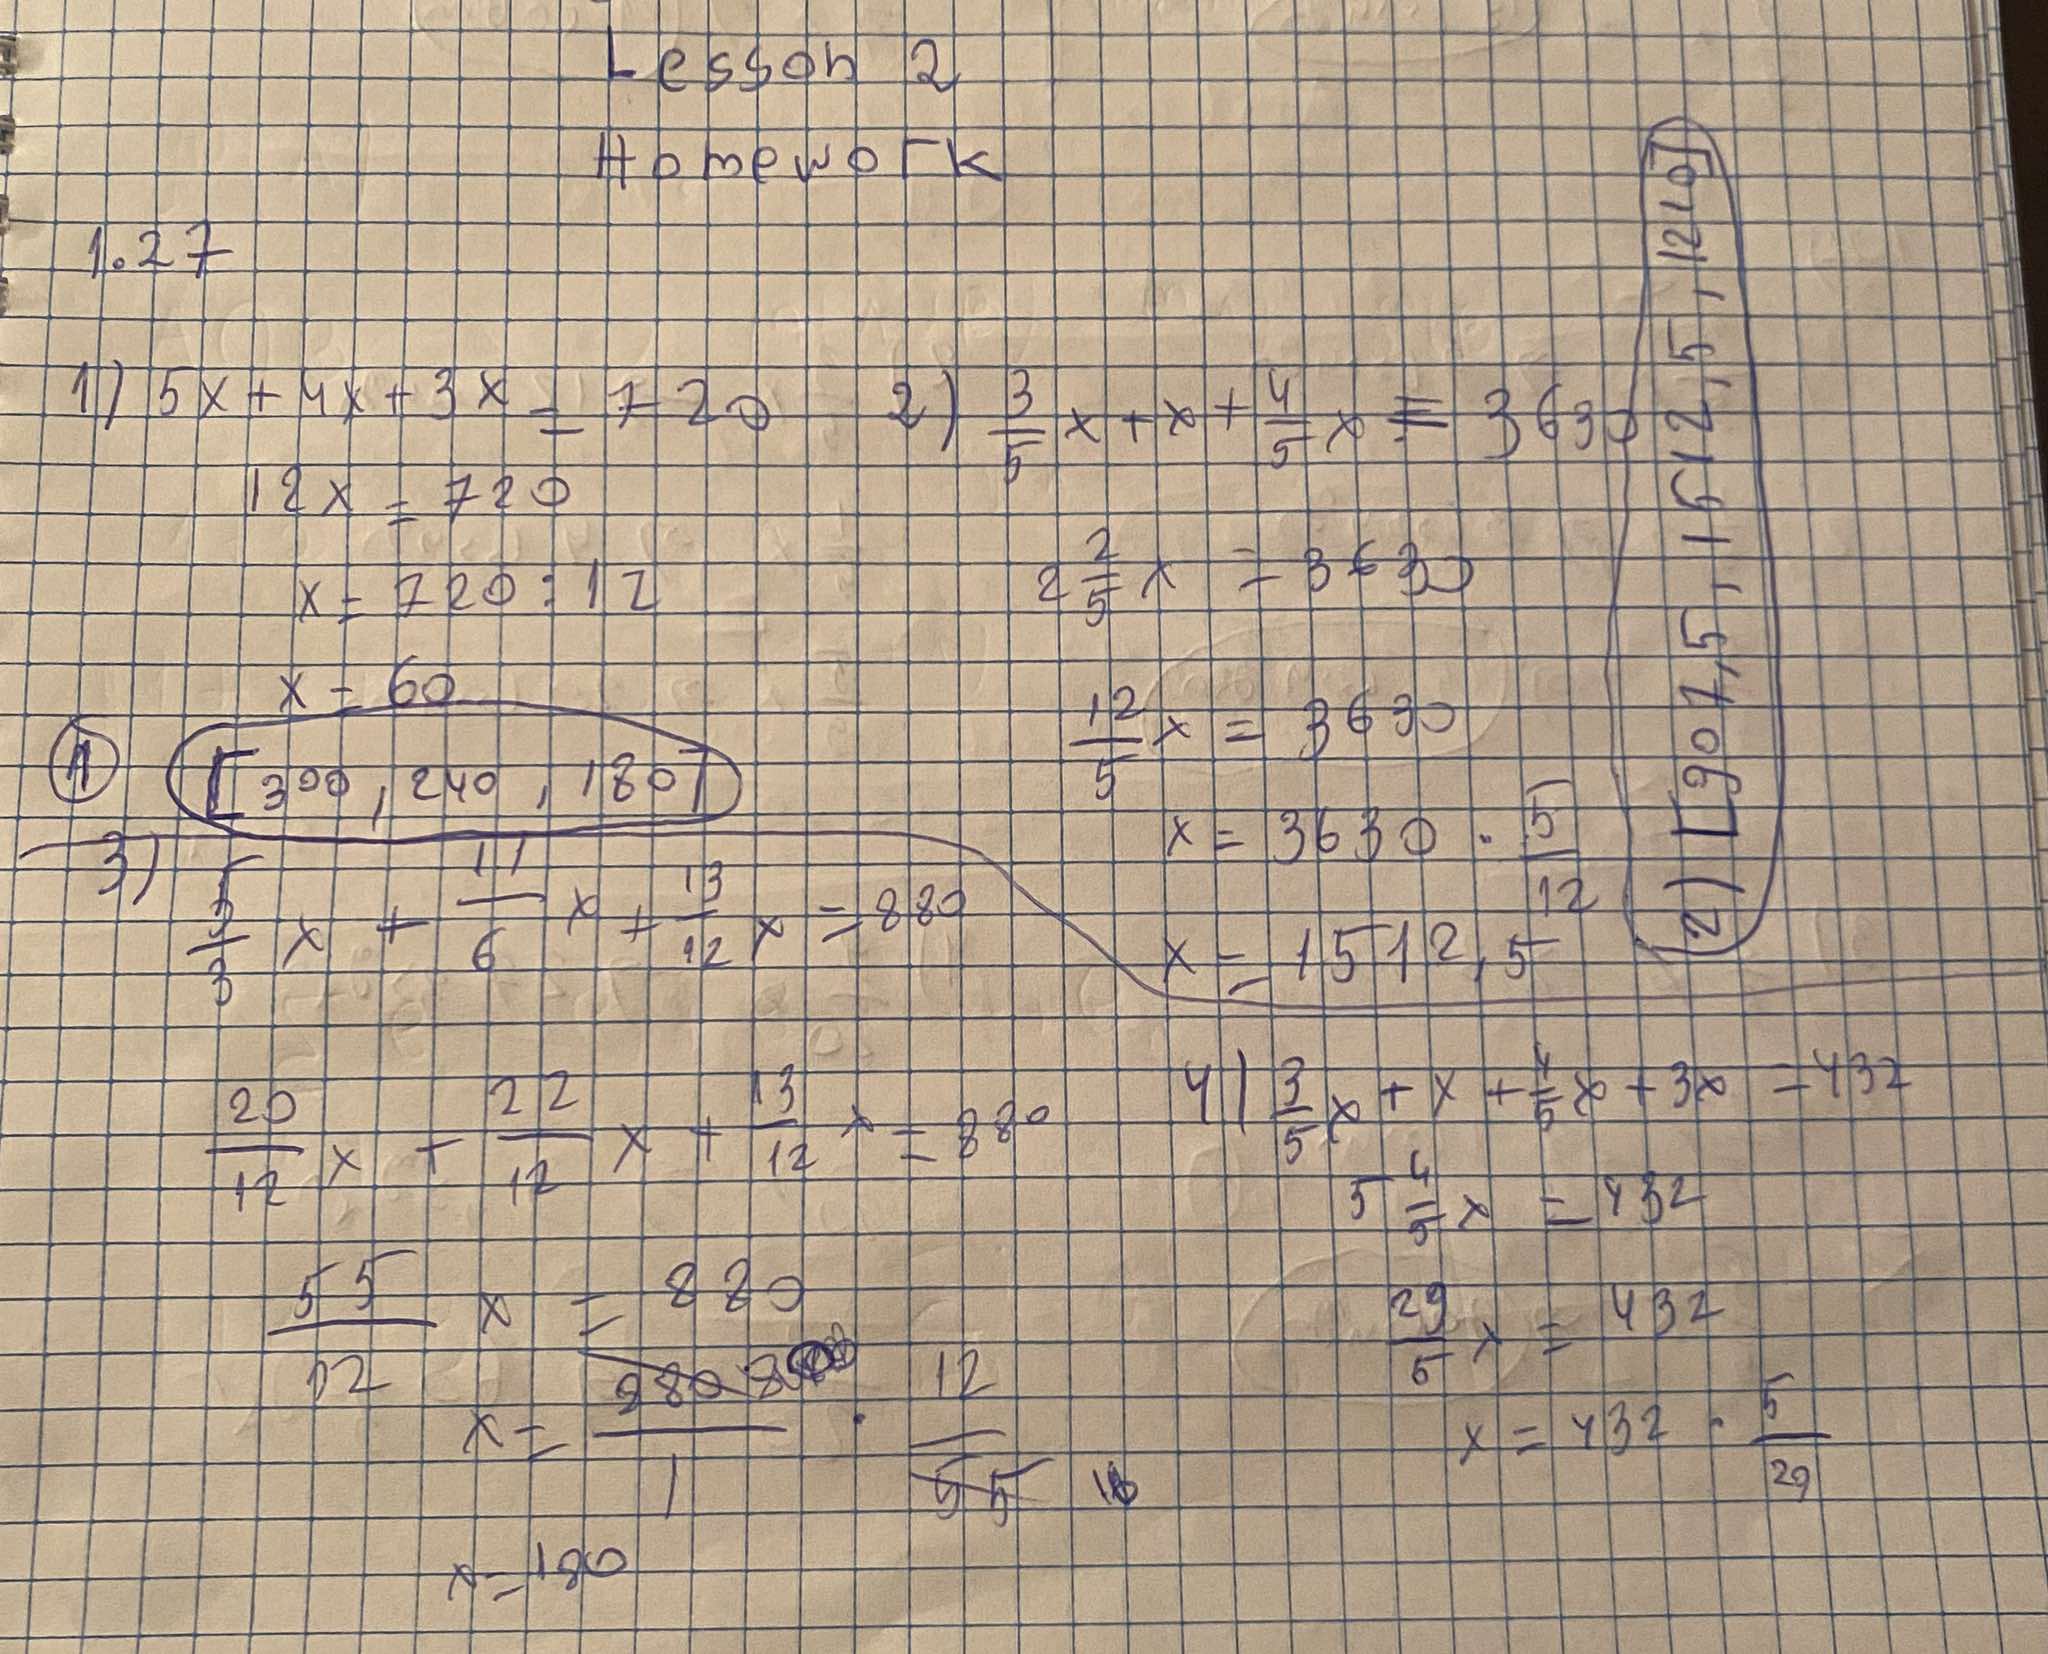 Lesson 2
Homework
1.27
1) 5x + 4x + 3x = 720
12x = 720
x = 720 : 12
x = 60
1 [300, 240, 180]
2) 3/5 x + x + 4/5 x = 3630
2 2/5 x = 3630
12/5 x = 3630
x = 3630 · 5/12
x = 1512,5
2) [907,5, 1512,5, 1210]
3) 5/3 x + 11/6 x + 13/12 x = 880
20/12 x + 22/12 x + 13/12 x = 880
55/12 x = 880
x = 880/1 · 12/55
x = 180
4) 3/5 x + x + 4/5 x + 3x = 432
5 4/5 x = 432
29/5 x = 432
x = 432 · 5/29